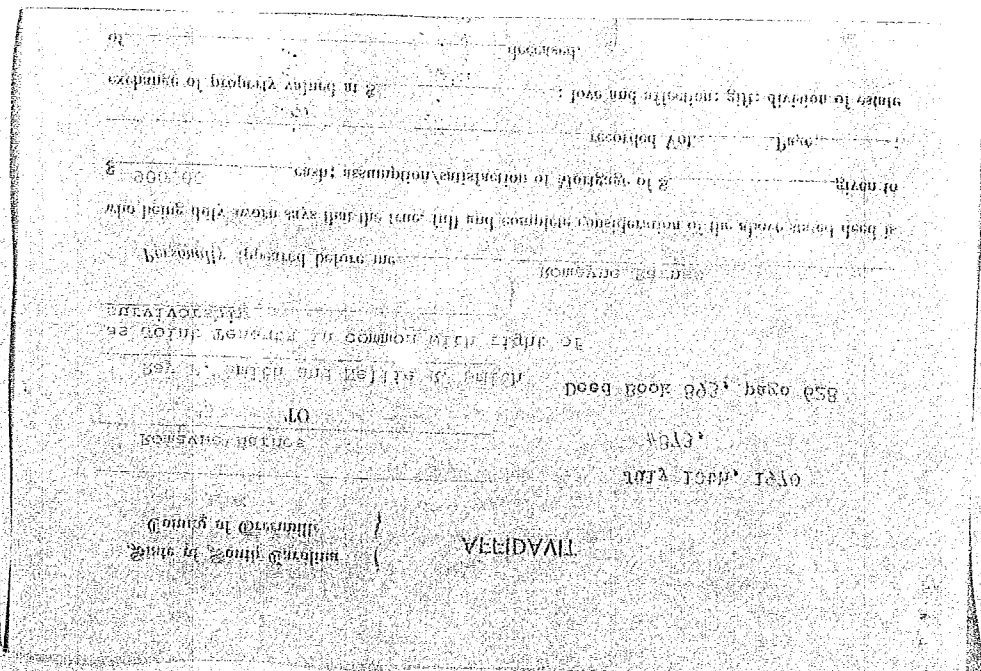 State of South Carolina )
County of Greenville )
AFFIDAVIT
July 13th, 1970
#873,
Romayne Barnes
TO
Ray Smith and Smith
Deed Book 893, page 628
as Joint Tenants in common with right of
survivorship
Personally appeared before me Romayne Barnes
who being duly sworn says that the true, full and complete consideration of the above stated deed is
$ 900.00 cash; assumption/satisfaction of Mortgage of $ given to
recorded Vol. Page ;
exchange of property valued at $ ; love and affection; gift; division of estate
of deceased.